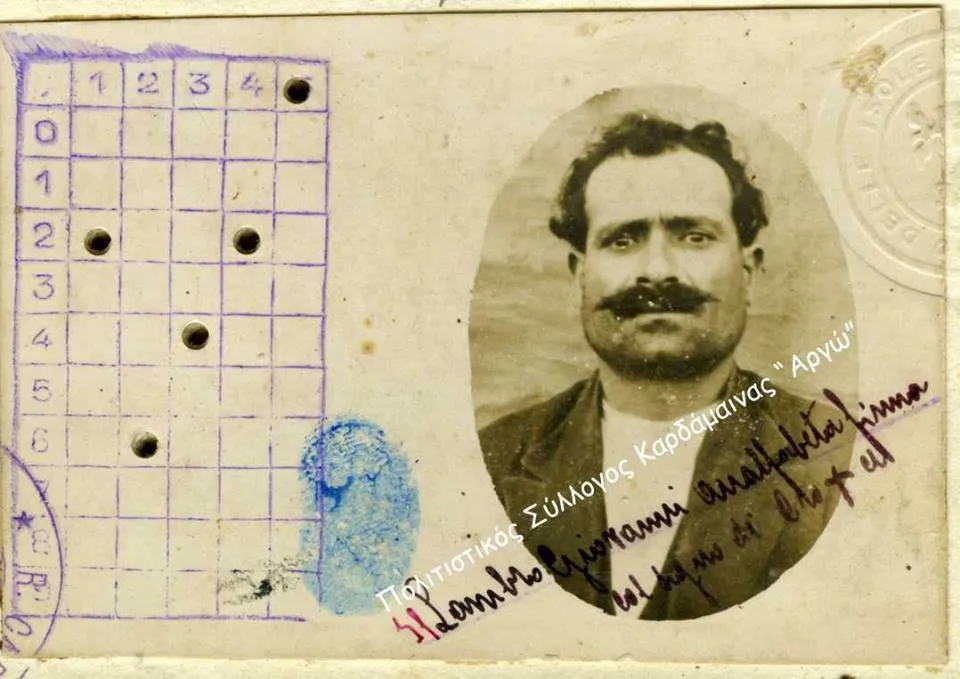 . 1 2 3 4
0
1
2
3
4
5
6
DELLE ISOLE
Πολιτιστικός Σύλλογος Καρδάμαινας " Αργώ"
Giovanni analfabeta firma
col segno di